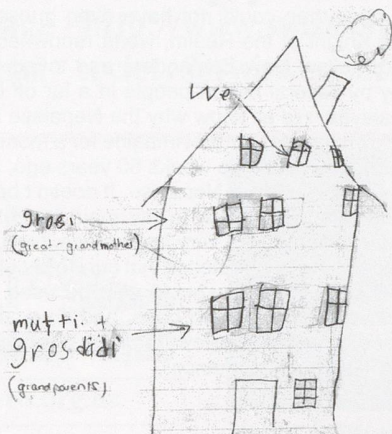 We
grosi
(great-grandmother)
mutti +
grosdidi
(grandparents)